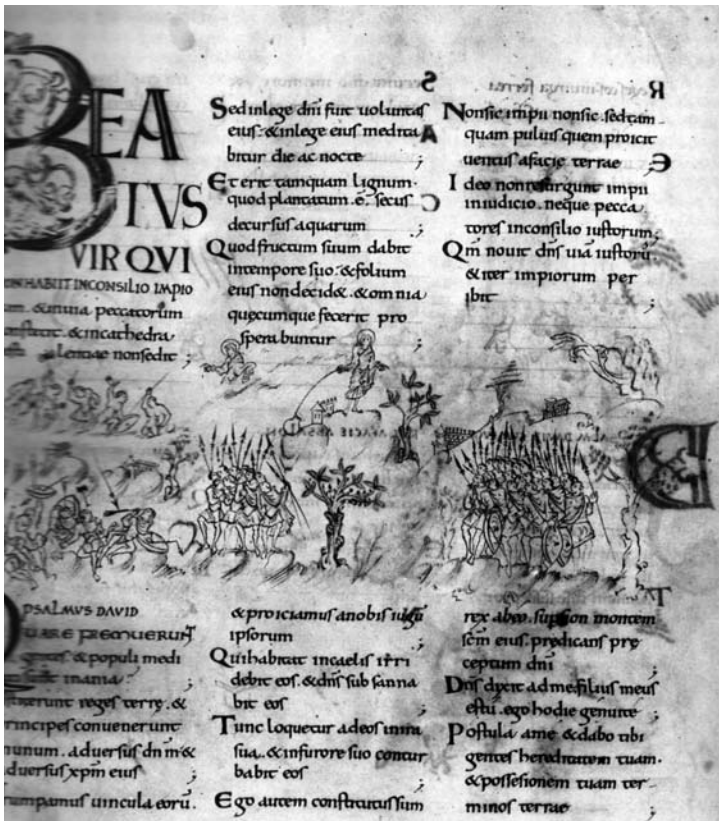 BEA
TVS
VIR QVI
HABIIT INCONSILIO IMPIO
&inuia peccatorum
&incathedra
nonsedit ;
Sedinlege dni fuit uoluntas
eius. &inlege eius medita
bitur die ac nocte ;
Et erit tamquam lignum.
quod plantatum .ē. secus
decursus aquarum
Quod fructum suum dabit
intempore suo. &folium
eius nondecid&. &omnia
quęcumque fecerit pro
sperabuntur ;
Nonsic impii nonsic. sedtam
quam puluis quem proicit
uentus afacie terrae ;
Ideo nonresurgunt impii
iniudicio. neque pecca
tores inconsilio iustorum;
Qm nouit dns uiā iustorū
&iter impiorum per
ibit ;
PSALMVS DAVID
UARE FREMUERUNT
gentes &populi medi
inania :
reges terrę. &
principes conuenerunt
unum. aduersus dnm &
aduersus xpm eius ;
rumpamus uincula eorū.
&proiciamus anobis iugū
ipsorum
Quihabitat incaelis irri
debit eos. &dns subsanna
bit eos ;
Tunc loquetur adeos inira
sua. &infurore suo contur
babit eos ;
Ego autem constitutussum
rex abeo. super montem
scm eius. predicans pre
ceptum dni ;
Dns dixit adme. filius meus
estu. ego hodie genuite ;
Postula ame &dabo tibi
gentes hereditatem tuam.
&possesionem tuam ter
minos terrae ;